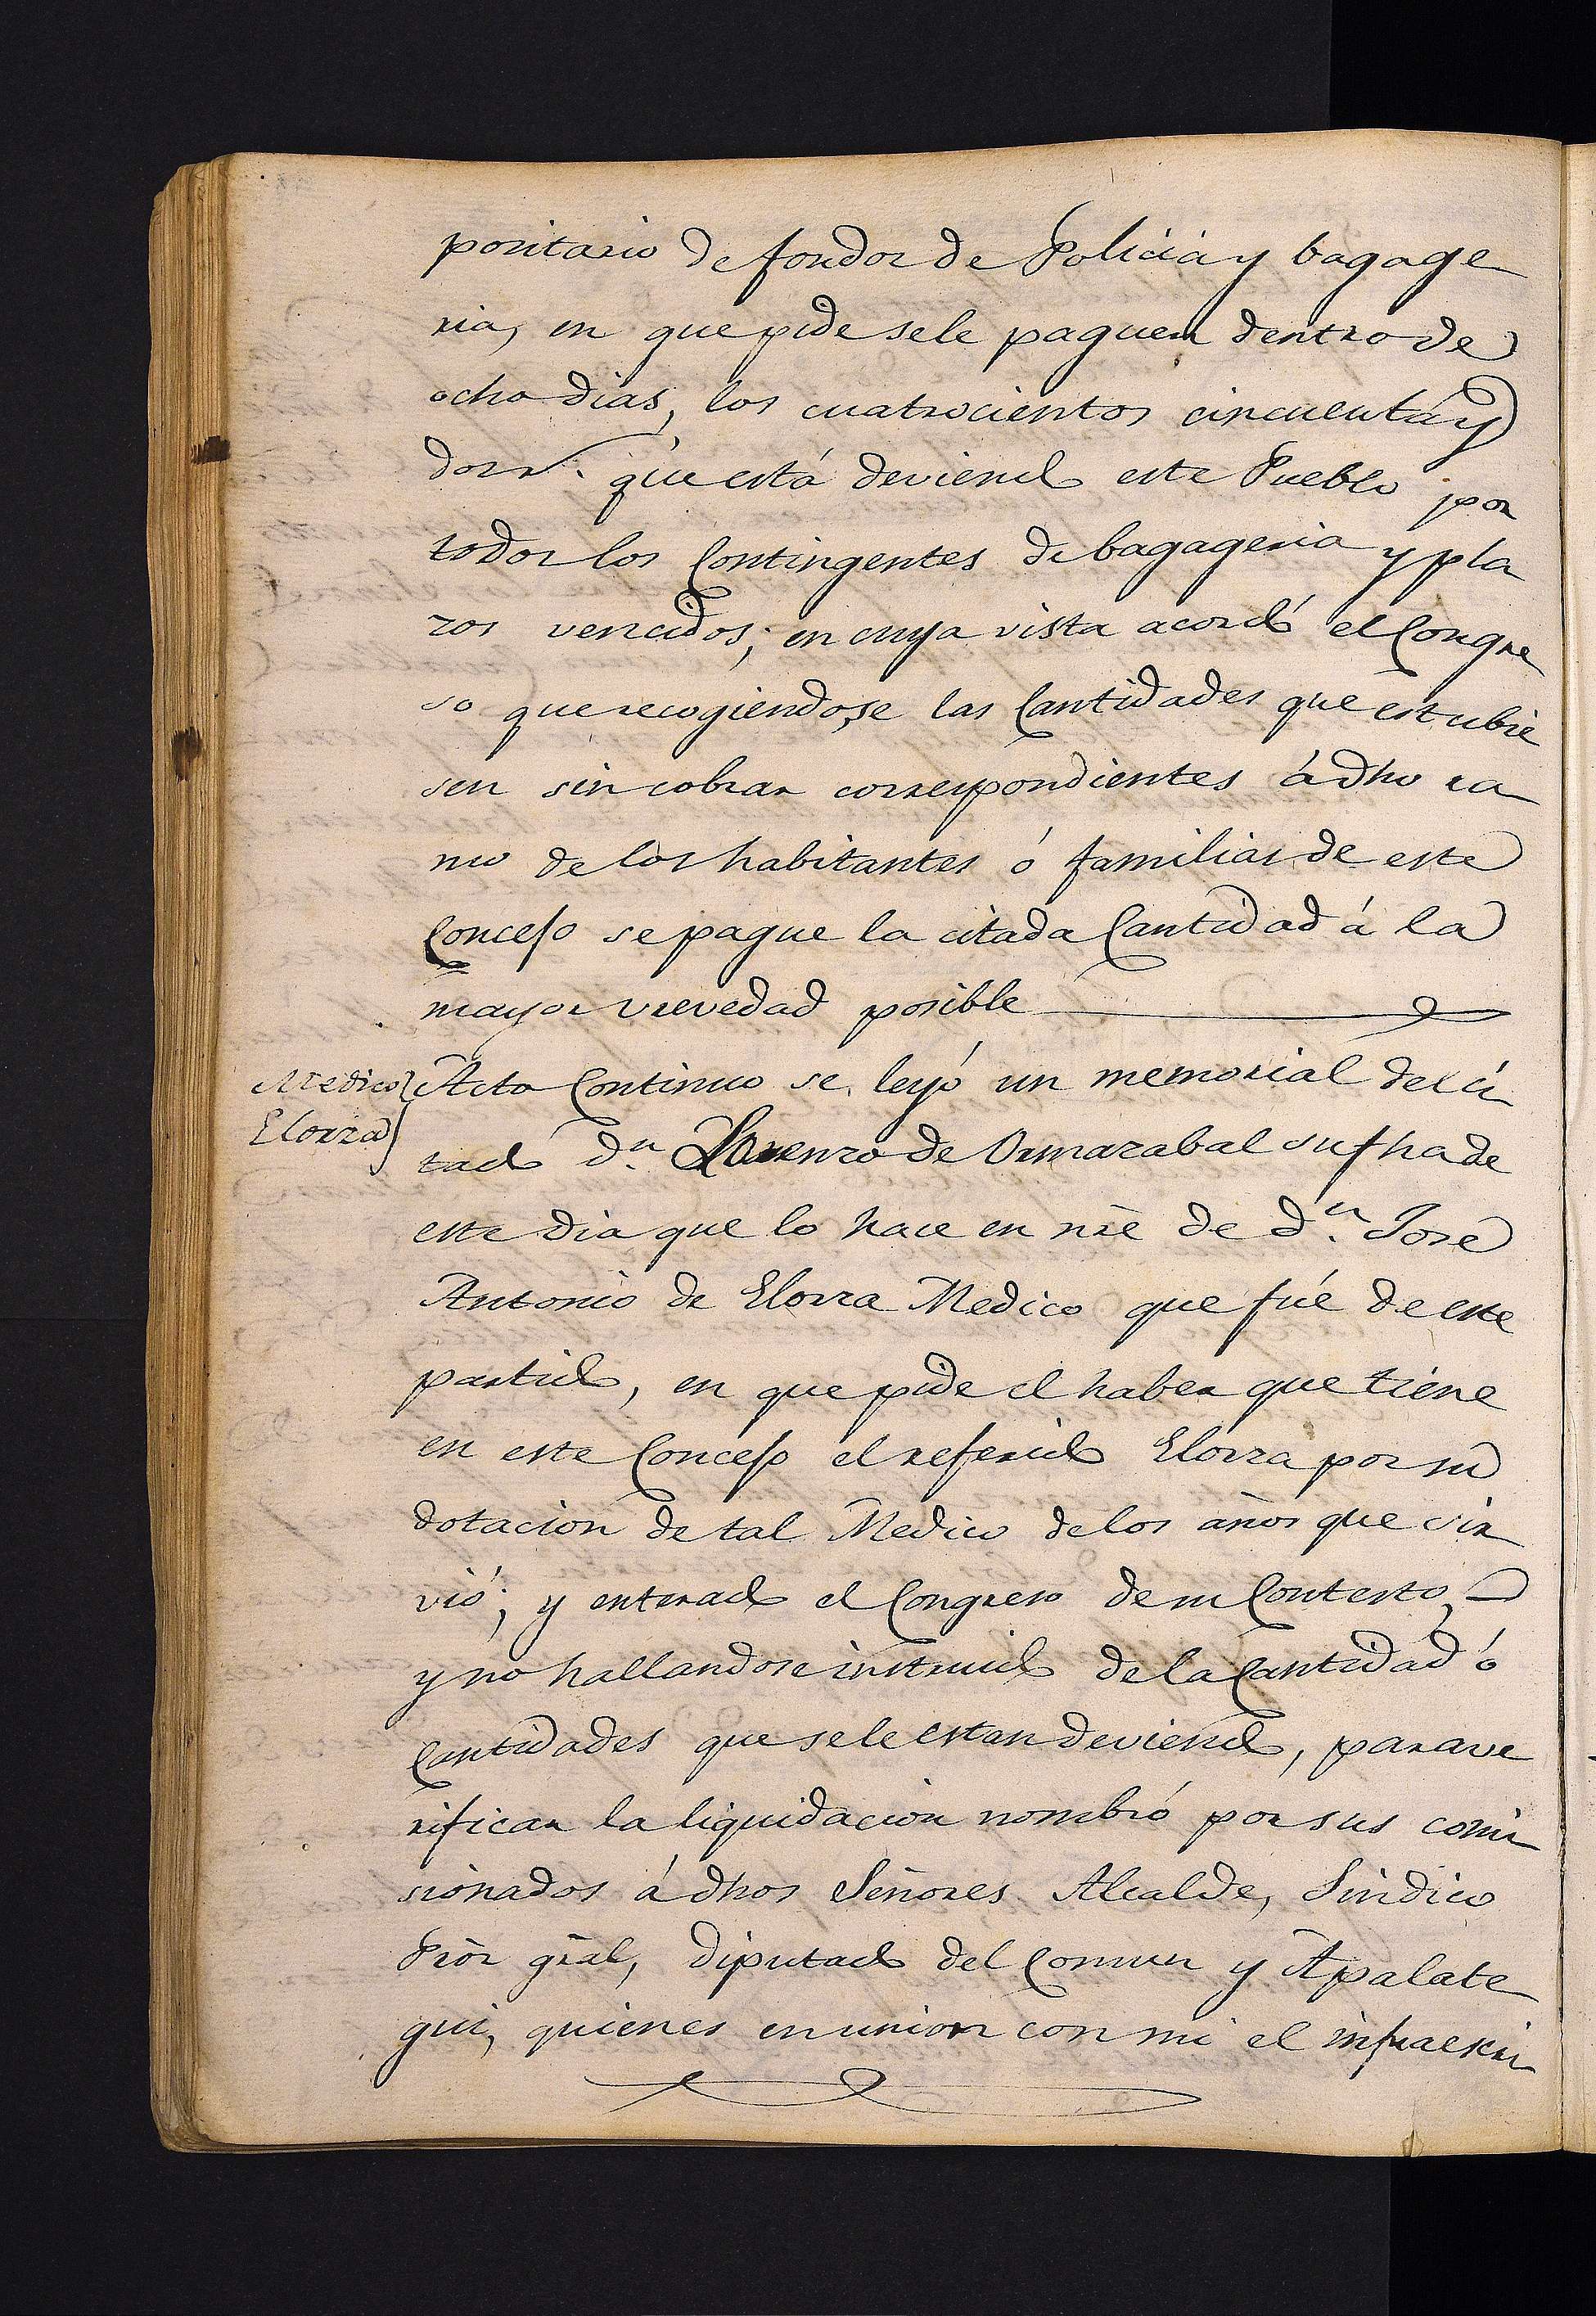 positario de fondos de Policia y bagage
ria, en que pide sele paguen dentro de
ocho dias, los cuatrocientos cincuenta y
dos r.^s que está deviendo este Pueblo por
todos los Contingentes de bagageria y pla
zos vencidos; en cuya vista acordó el Congre
so que recogiendose las Cantidades que estubie
sen sin cobrar correspondientes á dho ra
mo de los habitantes ó familias de este
Concejo se pague la citada Cantidad á la
mayor vrevedad posible
Medico
Elorza
Acto Continuo se leyó un memorial del ci
tado d.^n Lorenzo de Ormazabal su fha de
este dia que lo hace en nre de d.^n José
Antonio de Elorza Medico que fué de este
partido, en que pide el haber que tiene
en este Concejo el referido Elorza por su
dotacion de tal Medico de los años que sir
vió; y enterado el Congreso de su Contesto,
y no hallandose instruido de la Cantidad ó
Cantidades que sele estan deviendo, para ve
rificar la liquidacion nombró por sus comi
sionados á dhos Señores Alcalde, Sindico
Prōr gral, Diputado del Comun y Apalate
gui, quienes en union con mi el infraescri